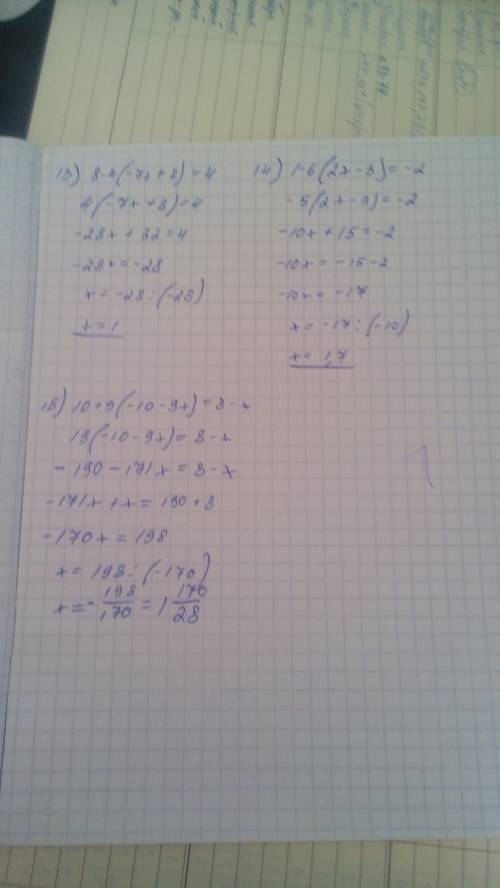 13) 8-4(-7x+8)=4
4(-7x+8)=4
-28x+32=4
-28x=-28
x=-28:(-28)
x=1
14) 1-6(2x-3)=-2
-5(2x-3)=-2
-10x+15=-2
-10x=-15-2
-10x=-17
x=-17:(-10)
x=1,7
15) 10+9(-10-9x)=8-x
19(-10-9x)=8-x
-190-171x=8-x
-171x+x=190+8
-170x=198
x=198:(-170)
x=-198/170=1 170/28